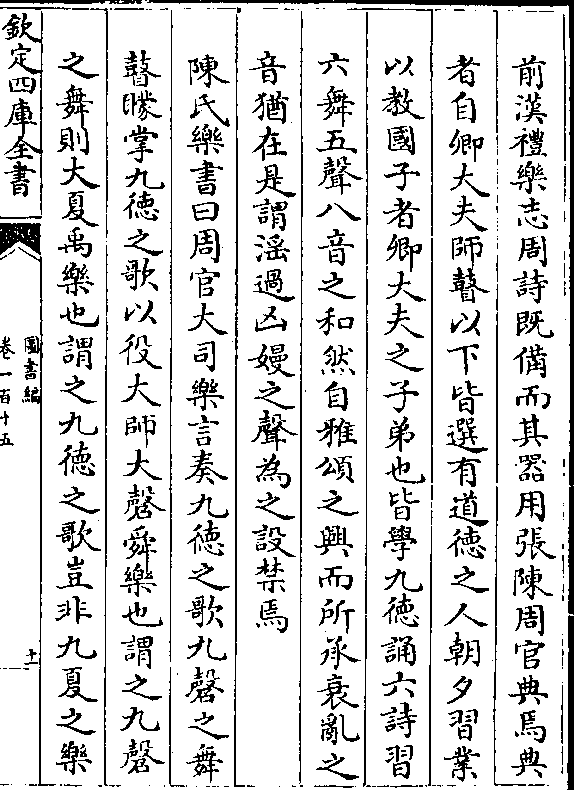 前漢禮樂志周詩既備而其器用張陳周官典焉典
者自卿大夫師瞽以下皆選有道德之人朝夕習業
以教國子者卿大夫之子弟也皆學九德誦六詩習
六舞五聲八音之和然自雅頌之興而所承衰亂之
音猶在是謂滛過凶嫚之聲為之設禁焉
陳氏樂書曰周官大司樂言奏九德之歌九磬之舞
瞽矇掌九德之歌以役大師大磬舜樂也謂之九磬
之舞則大夏禹樂也謂之九德之歌豈非九夏之樂
欽定四庫全書
圖書編
卷一百十五
十一